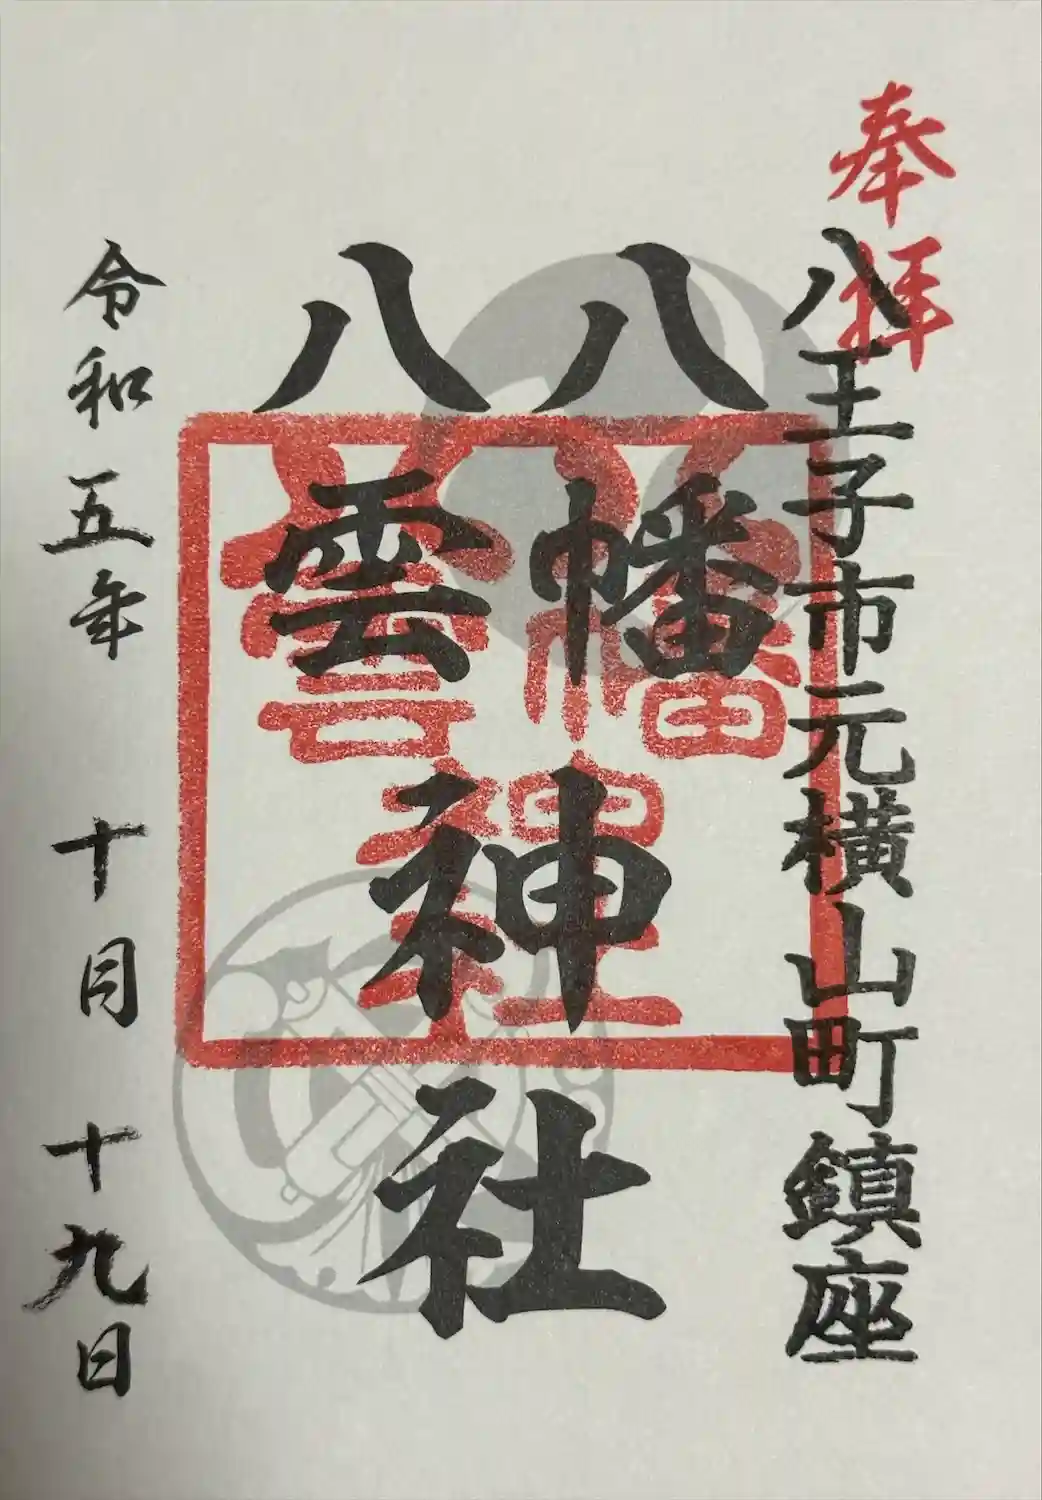 奉拝
八王子市元横山町鎮座
八幡
八雲
神社
令和五年 十月 十九日
八幡
八雲
神社